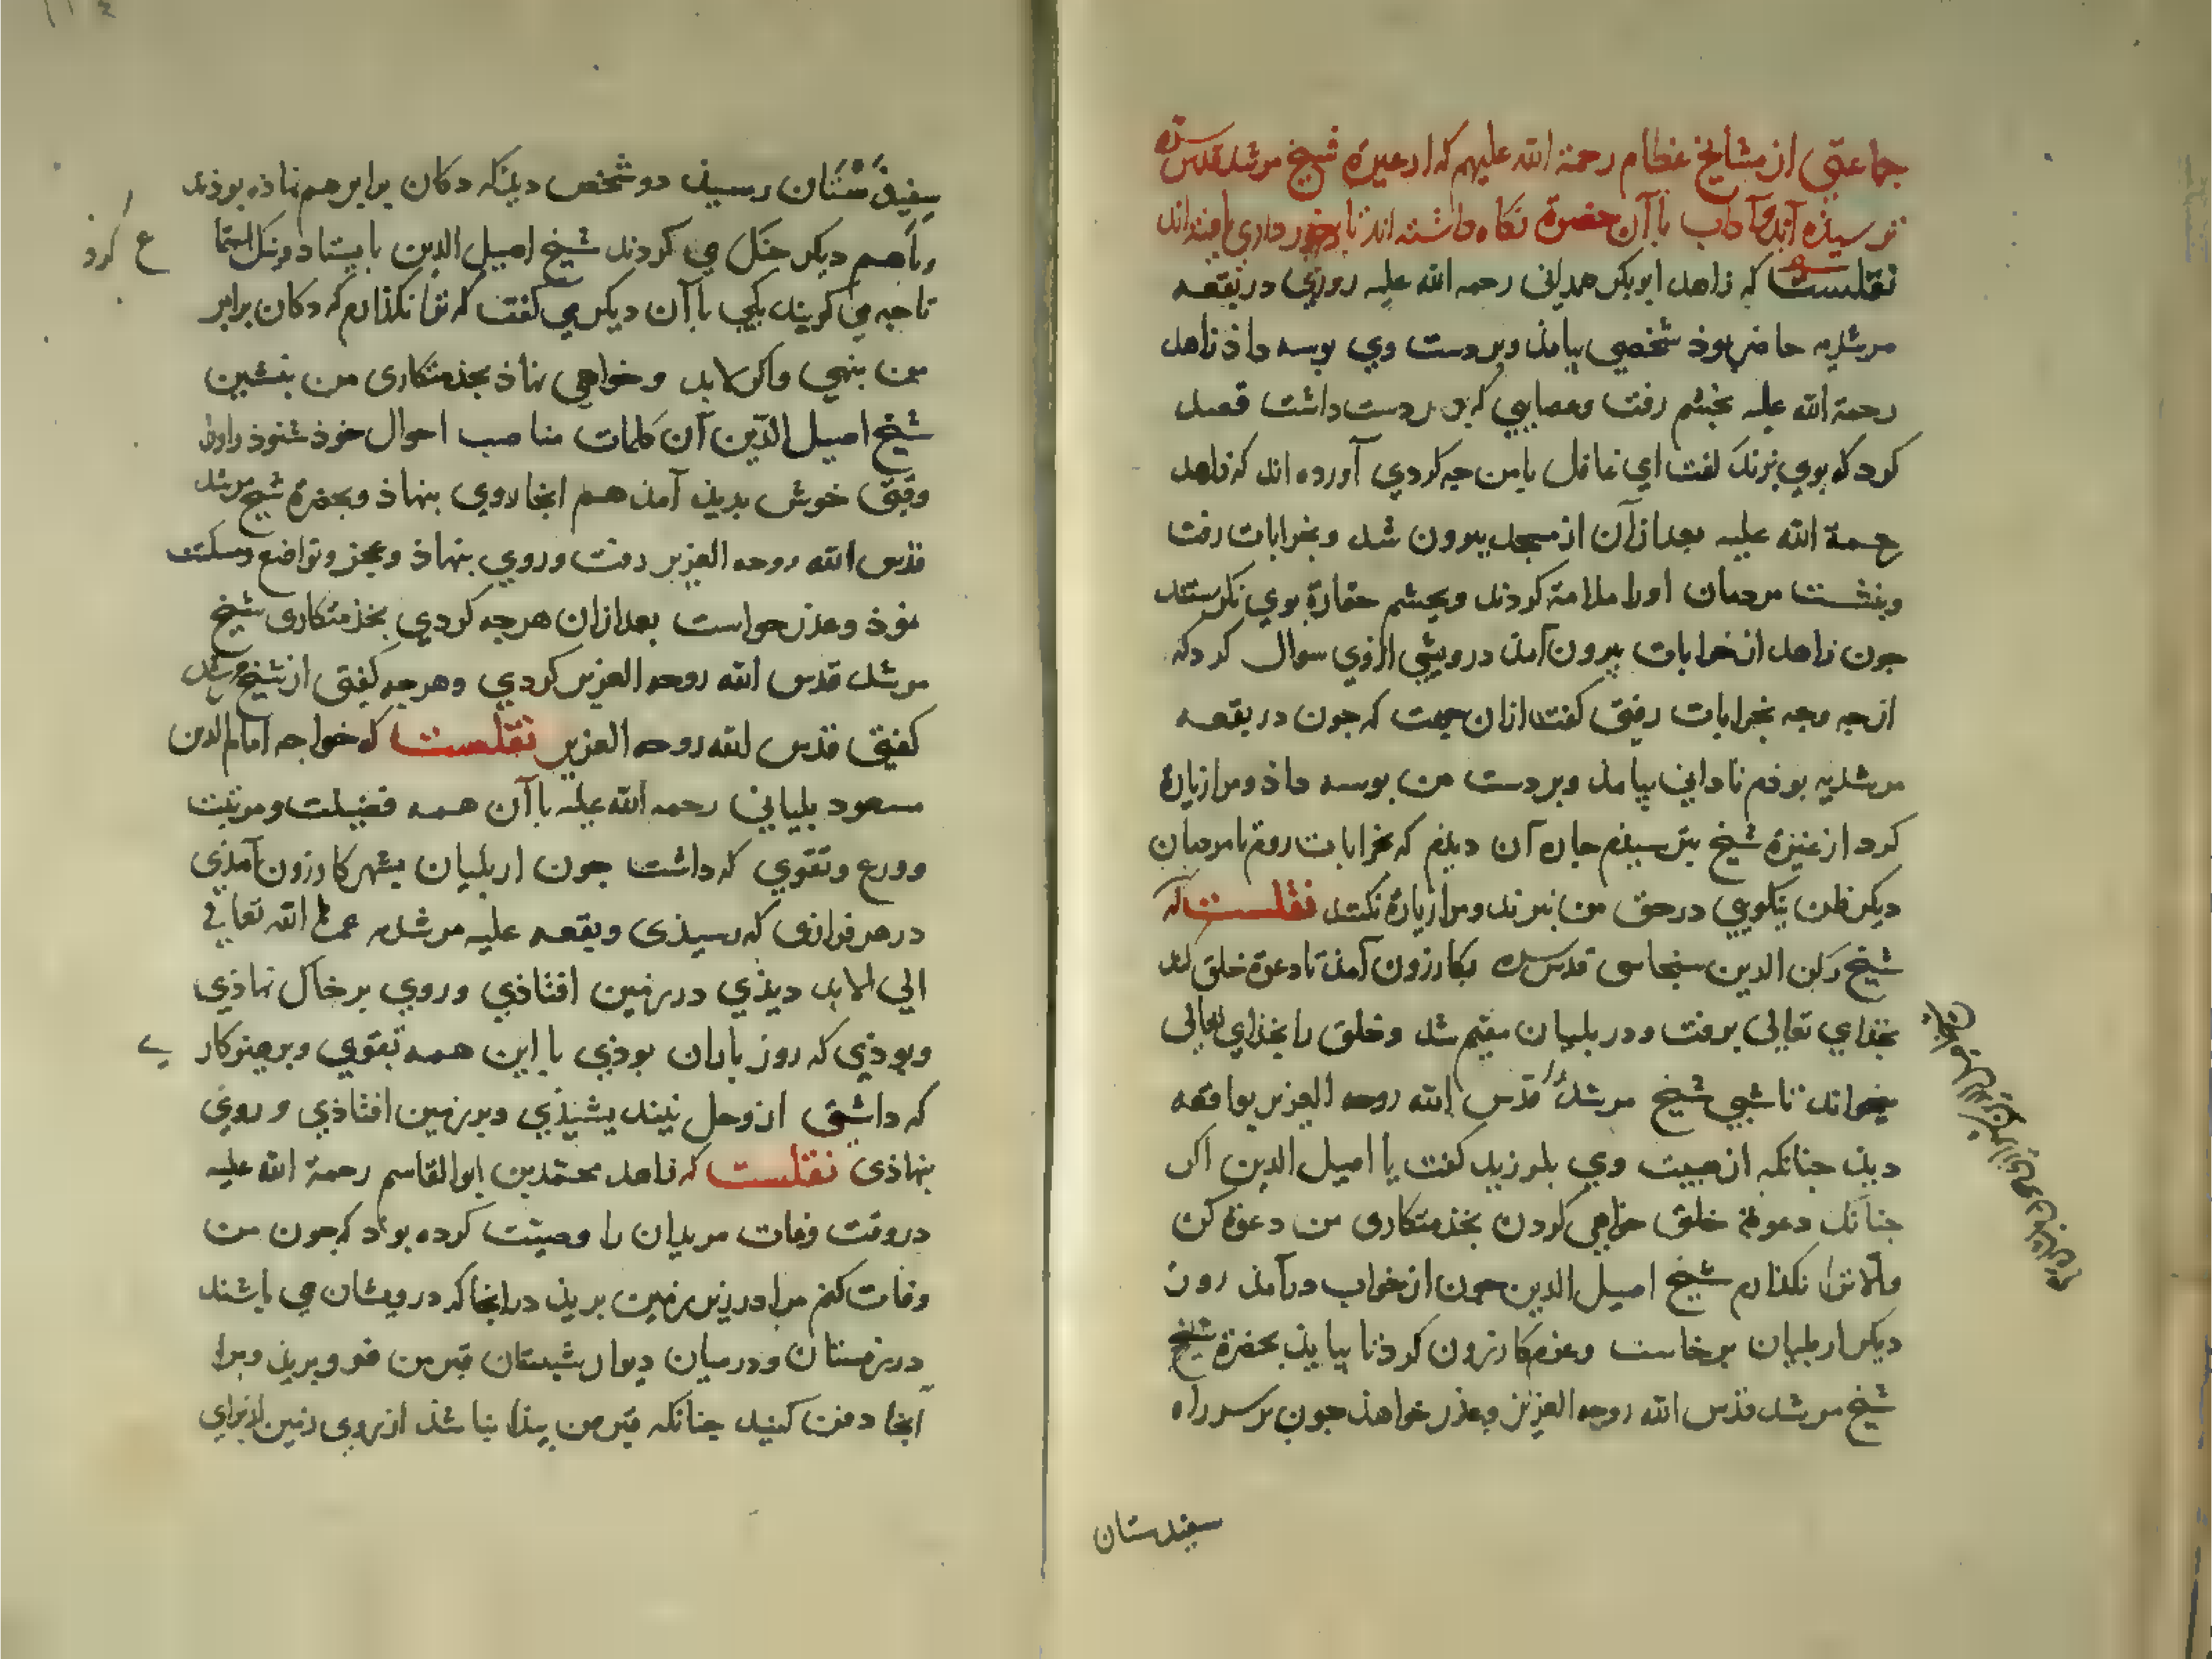 جماعتی از مشایخ عظام رحمة الله علیهم که از غیرة شیخ مرشد قدس سره
ترسیذه آند و آداب باآن حضرة نکاه داشته اند تا برخورداری یافته اند
نقلست که زاهد ابوبکر همدانی رحمه الله علیه روزی در بقعه
مرشدیه حاضر بوذ شخصی بیامذ و بر دست وی بوسه داذ زاهد
رحمة الله علیه بخشم رفت و عصایی که در دست داشت قصد
کرد که بوی زند کفت ای غافل بامن چه کردی آورده اند که زاهد
رحمة الله علیه بعد ازآن از مسجد بیرون شد و بخرابات رفت
و بنشست مردمان اورا ملامة کردند و بچشم حقارة بوی نکرستند
جون زاهد از خرابات بیرون آمذ درویشی ازوی سوال کرد که
از چه وجه بخرابات رفتی کفت ازان جهت که جون در بقعه
مرشدیه بوذم نادانی بیامذ و بر دست من بوسه داذ و مرا زیارة
کرد از غیرة شیخ بترسیذم چاره آن دیذم که بخرابات روم تا مردمان
دیکر ظن نیکویی در حق من نبرند و مرا زیارة نکنند نقلست که
شیخ رکن الدین سنجاسی قدس سره بکازرون آمذ تا دعوة خلق کند
بخذای تعالی برفت و در بلیان مقیم شد و خلق را بخذای تعالی
میخواند تا شبی شیخ مرشد را قدس الله روحه العزیز بواقعه
دیذ جنانکه از هیبت وی بلرزید کفت یا اصیل الدین اکر
جنانک دعوة خلق خواهی کردن بخذمتکاری من دعوة کن
والا ترا نکذارم شیخ اصیل الدین جون از خواب درآمذ روز
دیکر از بلیان برخاست و عزم کازرون کرد تا بیایذ بحضرة شیخ
شیخ مرشد قدس الله روحه العزیز و عذر خواهذ جون بر سر راه
سفیدستان
سفیذستان رسیذ دو شخص دیذ که دکان برابر هم نهاذه بوذند
و باهم دیکر جنک می کردند شیخ اصیل الدین بایستاد و نیک استماع کرد
تا چه می کویند یکی باآن دیکر می کفت که ترا نکذارم که دکان برابر
من بنهی و اکر لابد و خواهی نهاذ بخذمتکاری من بنشین
شیخ اصیل الدین آن کلمات مناسب احوال خوذ شنوذ و اورا
وقتی خوش بدیذ آمذ هم آنجا روی بنهاذ و بحضرة شیخ مرشد
قدس الله روحه العزیز رفت و روی بنهاذ و عجز و تواضع و مسکنت
نموذ و عذر خواست بعد ازان هرچه کردی بخذمتکاری شیخ
مرشد قدس الله روحه العزیز کردی و هرچه کفتی از شیخ مرشد
کفتی قدس الله روحه العزیز نقلست که خواجه امام الدین
مسعود بلیانی رحمه الله علیه باآن همه فضیلت و مرتبت
و ورع و تقوی که داشت جون از بلیان بشهر کازرون آمذی
در هر فرازی که رسیذی و بقعه علیه مرشدیه عمرها الله تعالی
الی الابد دیذی در زمین افتاذی و روی بر خاک نهاذی
و بوذی که روز باران بوذی با این همه تقوی و پرهیزکاری
که داشتی از وحل نیندیشیذی و بر زمین افتاذی و روی
بنهاذی نقلست که زاهد محمد بن ابو القاسم رحمة الله علیه
در وقت وفات مریدان را وصیت کرده بود که جون من
وفات کنم مرا در زیر زمین بریذ در آنجا که درویشان می باشند
در زمستان و در میان دیوار شبستان قبر من فرو بریذ و مرا
آنجا دفن کنید جنانکه قبر من پیذا نباشذ از روی زمین از برای